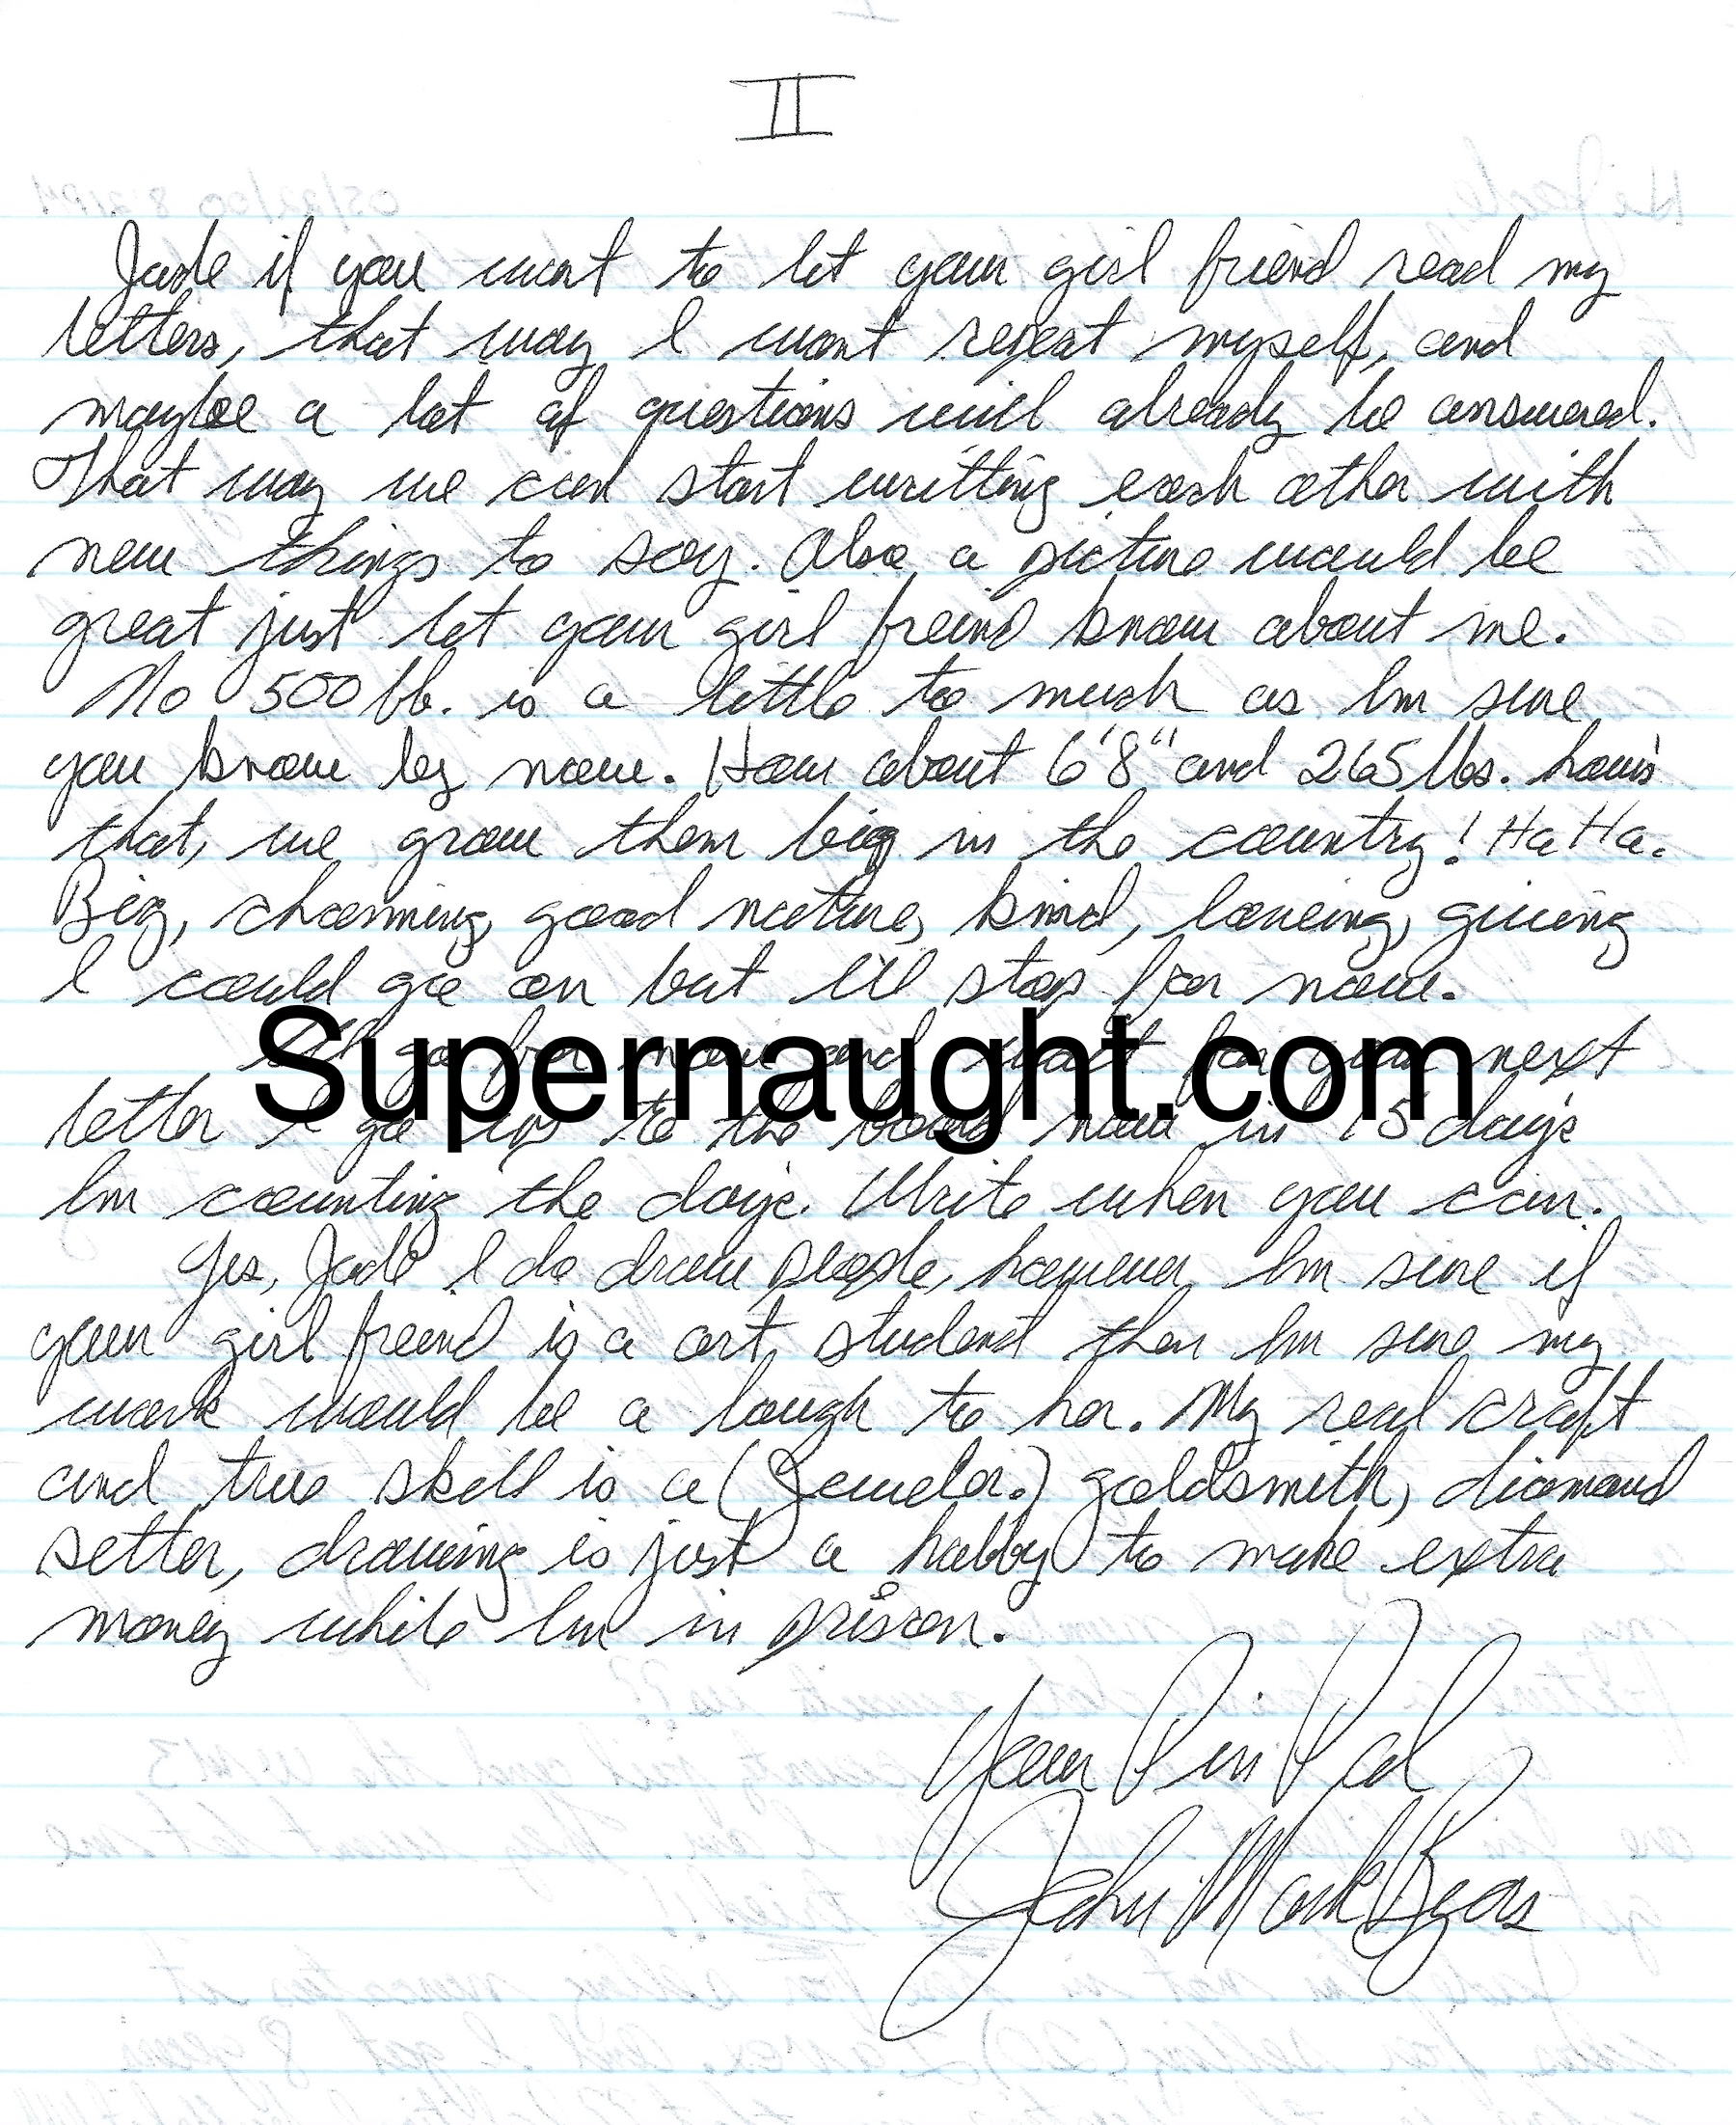 II
Jade if you want to let your girl friend read my
letters, that way I wont repeat myself, and
maybe a lot of questions will already be answered.
That way we can start writting each other with
new things to say. Also a picture would be
great just let your girl freind know about me.
No 500 lb. is a little to much as Im sure
you know by now. How about 6'8" and 265 lbs. how's
that, we grow them big in the country! Ha Ha.
Big, charming, good nature, kind, loveing, giveing
I could go on but I'll stop for now.
I'll go for now and wait for your next
Supernaught.com
letter I go up to the board now in 15 days
Im counting the days. Write when you can.
Yes, Jade I do draw people, however Im sure if
your girl freind is a art student then Im sure my
work would be a laugh to her. My real craft
and true skill is a (Jeweler.) goldsmith, diamond
setter, drawing is just a hobby to make extra
money while Im in prison.
Your Pin Pal
John Mark Byers